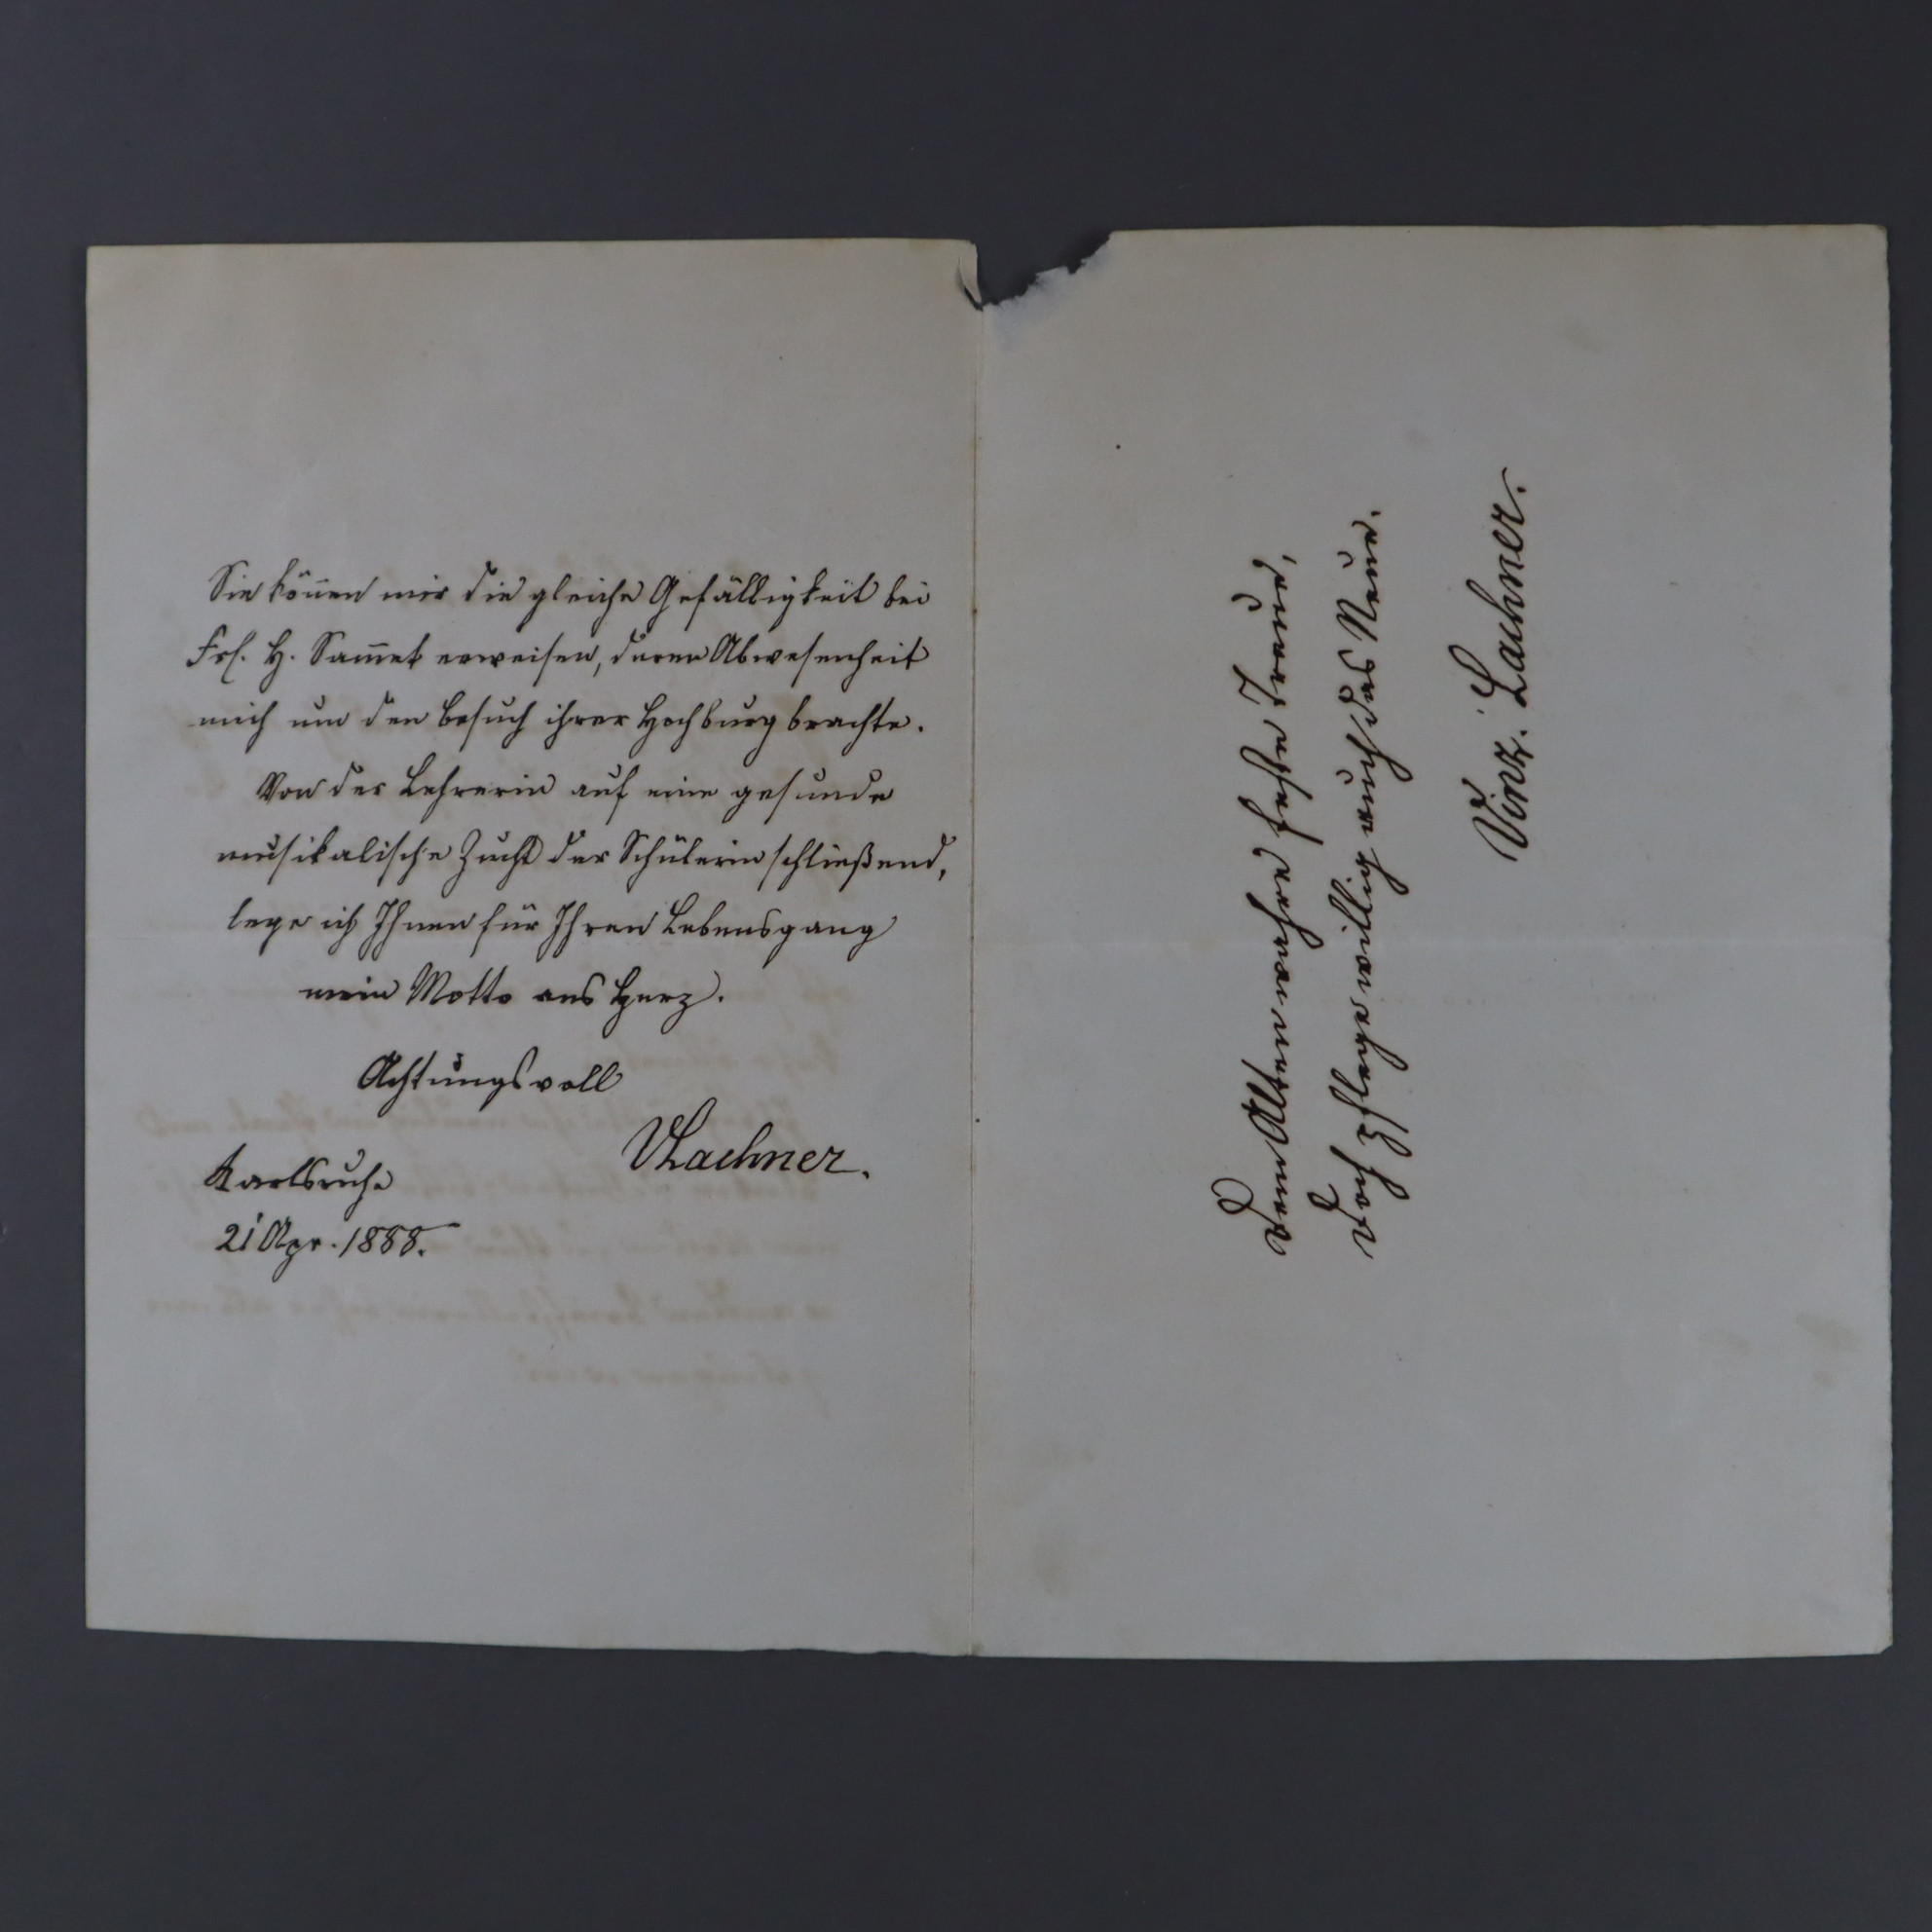 Sie können mir die gleiche Gefälligkeit bei
Frl. H. Sam̄et erweisen, deren Abwesenheit
mich um den Besuch ihrer Hochburg brachte.
Von der Lehrerin auf eine gesunde
musikalische Zucht der Schülerin schließend,
lege ich Ihnen für Ihren Lebensgang
mein Motto ans Herz.
Achtungsvoll
VLachner.
Karlsruhe
21 Apr. 1888.
Dem Alten wahre feste Treue,
doch pflege willig auch das Neue.
Vinz. Lachner.